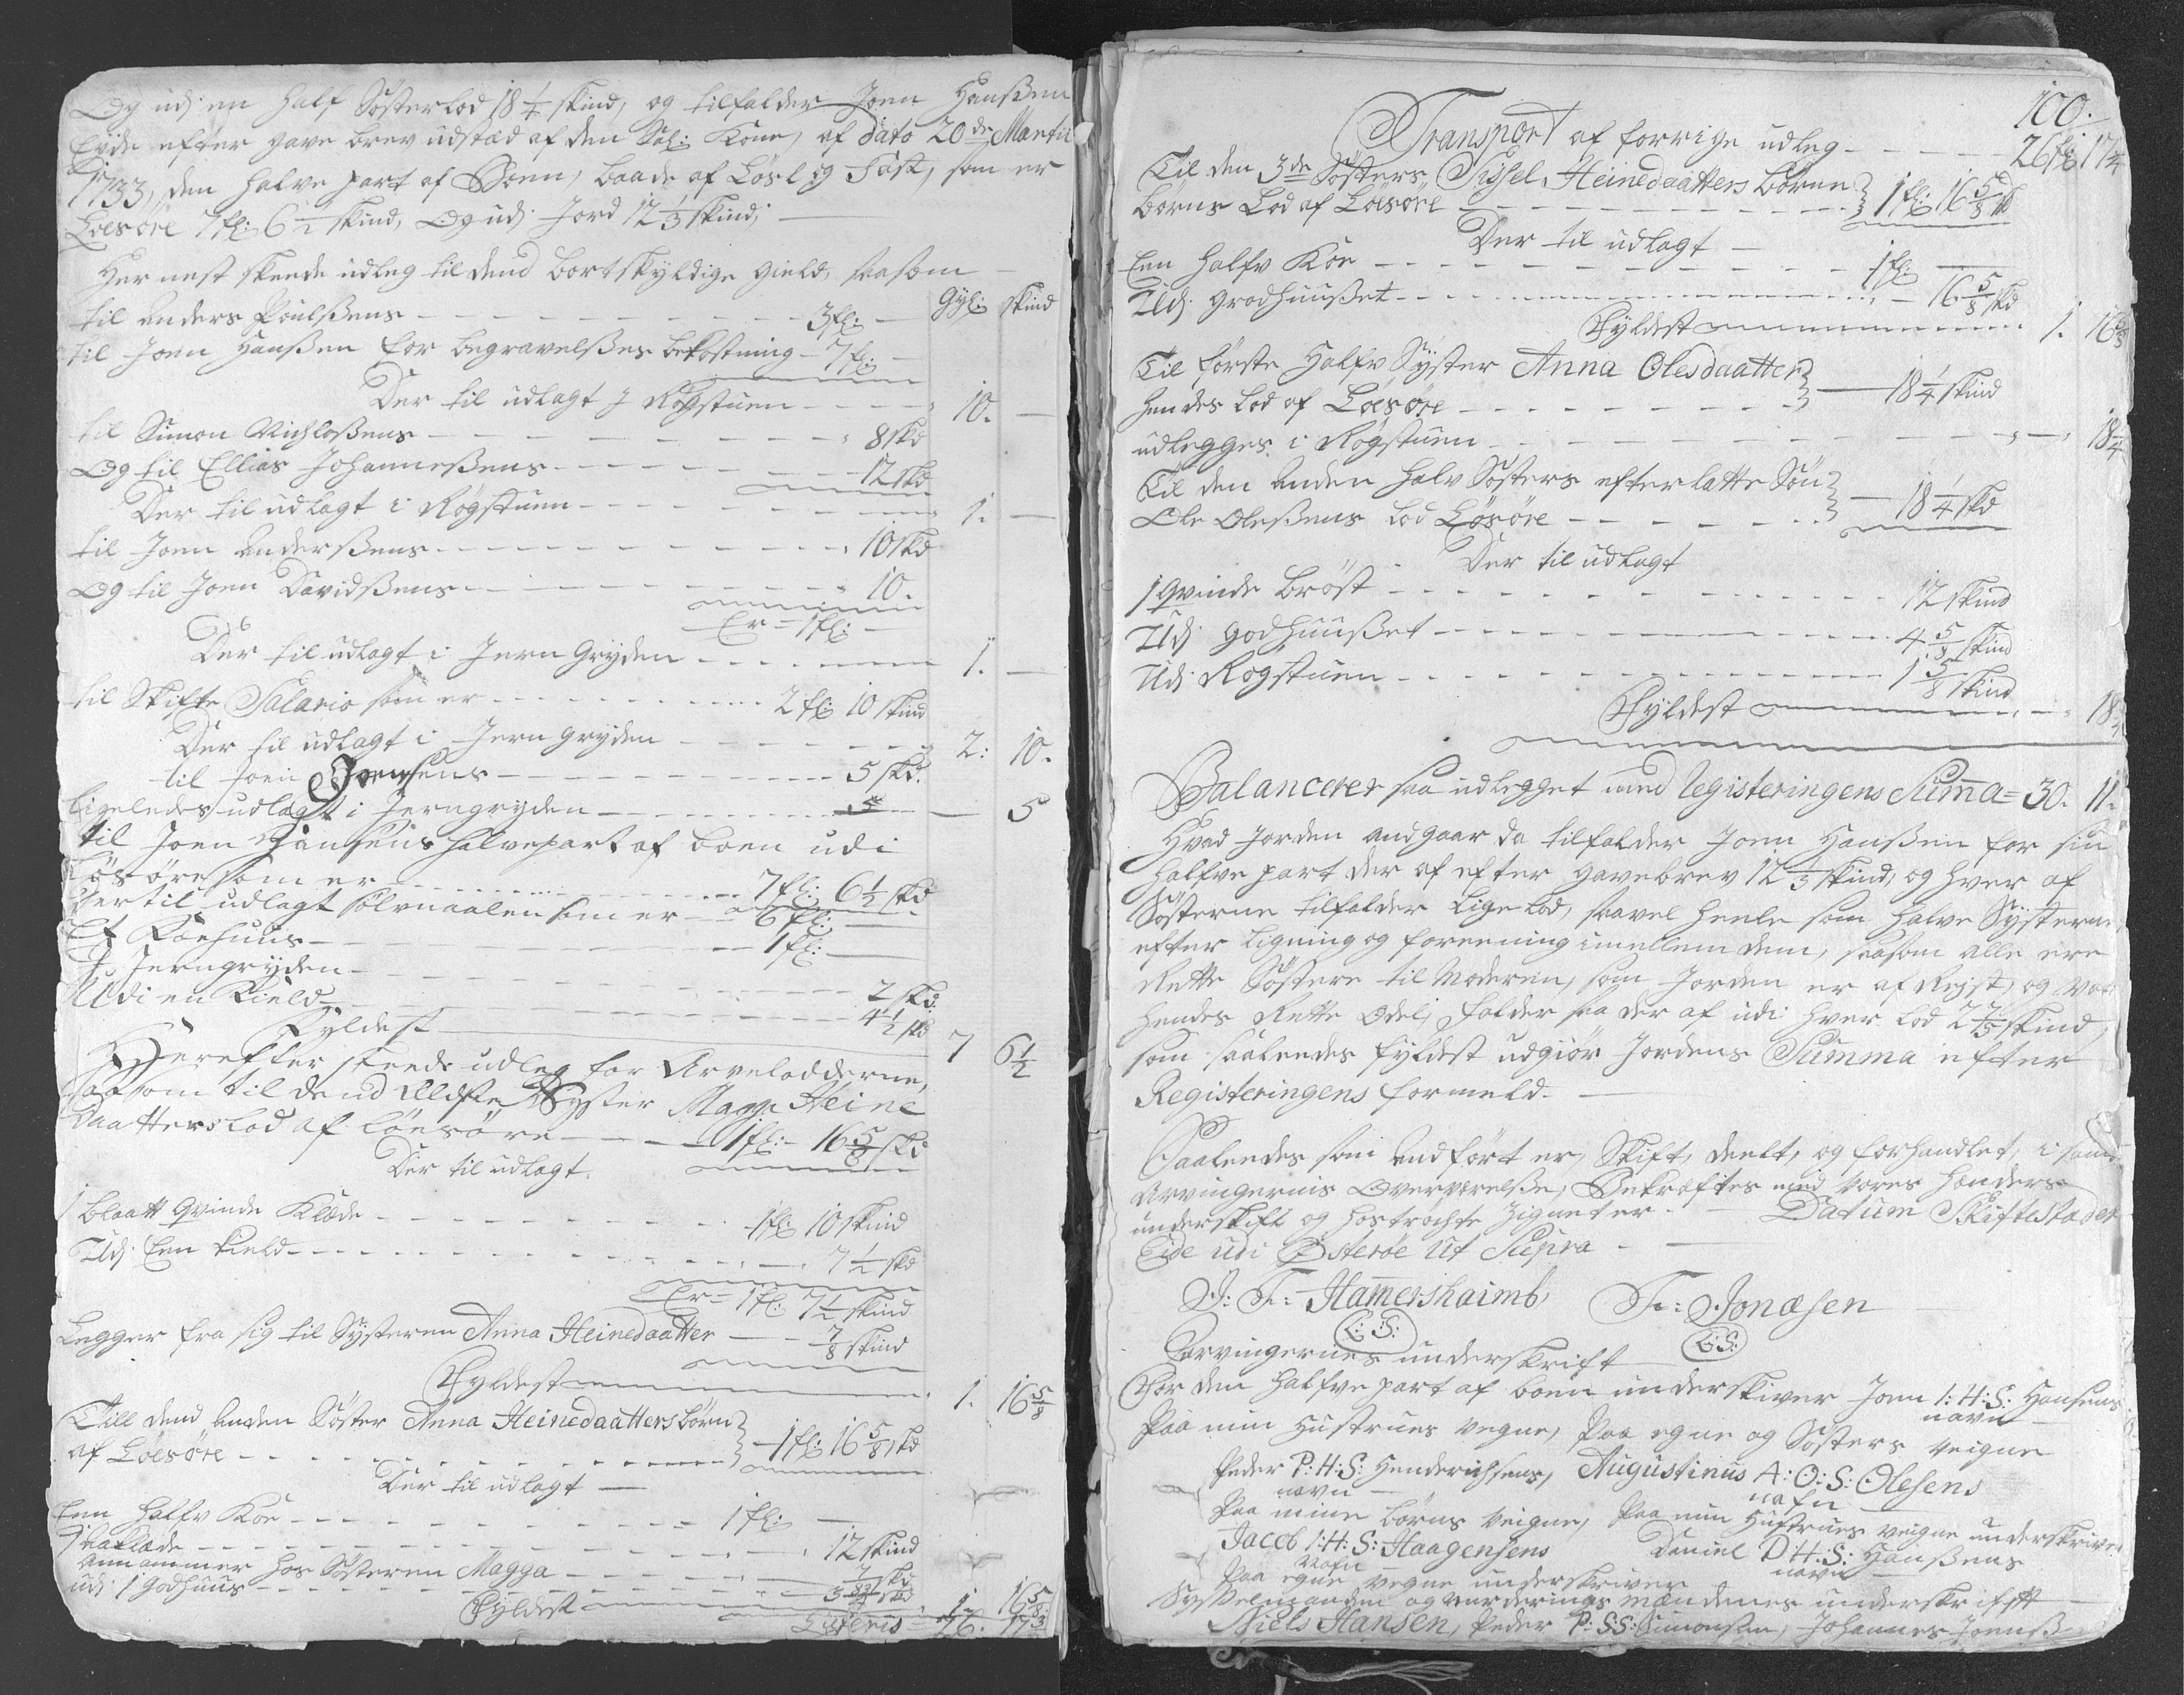 Og udj en half Søsterlod 18 1/4 skind, og tilfalder Joen Hanssen
Eide efter gave brev udstæd af den Sal: Kone, af dato 20de Martii
1733, den halve part af Boen, baade af Løst og Fast, som er
Løesøre 7 fl: 6 1/2 skind, Og udj Jord 12 1/3 skind;
Her nest skeede udleg til dend bortskyldige gield, saasom
Gyl: skind
til Anders Poulssens - 3 fl: -
til Joen Hanssen for begravelsses bekostning - 7 fl: -
Der til udlagt J Røgstuen - 10. -
til Simon Michlossens - 8 skd
Og til Ellias Johannessens - 12 skd
Der til udlagt i Røgstuen - 1. -
til Joen Anderssens - 10 skd
Og til Joen Davidssens - 10.
Er = 1 fl: -
Der til udlagt i Jern Gryden - 1. -
til Skifte Salario som er - 2 fl: 10 skind
Der til udlagt i Jern gryden - 2: 10.
til Joen Joensens - 5 skd.
Ligeledes udlagt i Jerngryden - 5
til Joen Hansens halvepart af boen udi
Løsøre som er - 7 fl: 6 1/2 skd
Dertil udlagt sølvnaalen som er - 6 fl: -
Et Koehuus - 1 fl: -
J Jerngryden - 2 skd:
Udi en Kield - 4 1/2 skd
Fyldest - 7 6 1/2
Herefter skeede udleg for Arvelodderne,
saasom til dend Eldste Syster Magga Heine
daatters lod af løesøre - 1 fl: - 16 5/8 skd
Der til udlagt.
1 blaatt Qvinde Klæde - 1 fl: 10 skind
Udj Een Kield - 7 1/2 skd
Er = 1 fl: 17 1/2 skind
Legger fra sig til Systeren Anna Heinedaatter - 7/8 skind
Fyldest - 1. 16 5/8
Till dend anden Søster Anna Heinedaatters børn
af Løesøre - 1 fl: 16 5/8 skd
Der til udlagt -
Een halfv Koe - 1 fl: -
12 skind
Annammer hos Søsteren Magga - 7/8 skd:
udi 1 Godhuus - 3 3/4 skd
Fyldest - 1. 16 5/8
Lateris = 26. 17 3/4
100.
Transport af forrige udleg - 26 fl: 17 3/4
Til den 3de Søsters Sissel Heinedaatters børne
børns Lod af Løesøre - 1 fl: 16 5/8 skd
Der til udlagt -
Een halfv Koe - 1 fl: -
Udj grodhuusset - 16 5/8 skd
Fyldest - 1. 16 5/8
Til første halfv Syster Anna Olesdaatter
hendes Lod af Løesøre - 18 1/4 skind
udlegges i Røgstuen - 18 1/4
Til den anden halv Søsters efterlatte Søn
Ole Olessens lod Løsøre - 18 1/4 skd
Der til udlagt
1 Qvinde brøst - 12 skind
Udj godhuusset - 4 5/8 skind
Udj Røgstuen - 1 5/8 skind
Fyldest - 18 1/4
Balancerer saa udlegget med Registeringens Summa = 30. 11.
Hvad Jorden andgaar da tilfalder Joen Hanssen for sin
halfve part der af efter gavebrev 12 1/3 skind, og hver af
Søsterne tilfalder Lige lod, saavel heele som halve Systerne,
efter Ligning og foreening imellem dem, saasom alle ere
Rette Søstere til Moderen, som Jorden er af Rejst, og var
hendes Rette Odel, falder saa der af udi hver lod 2 2/5 skind,
som saaleedes fyldest udgiør Jordens Summa efter
Registeringens formeld. -
Saaleedes som andført er, Skift, deelt, og forhandlet, i samt:
Arvingernis Overværelsse, Bekræftes med vores hænders
underskift og hostrøchte Zigneter. - Datum Skiftestadet
Eide udi Østerøe Ut Supra -
J: F: Hamershaimb, Fr: Jonæsen
L: S: L: S:
Arvingernes underskrift
For den halfve part af boen underskiver Joen I: H: S: Hansens
navn
Paa min Hustrues vegne, Paa egne og Søsters veigne
Peder P: H: S: Henderichsens, Augustinus A: O: S: Olesens
navn nafn
Paa mine børns veigne, Paa min Hustrues veigne underskriver
Jacob I: H: S: Haagensens Daniel D: H: S: Hanssens
Nafn navn
Paa egne vegne underskriver
Sysselmanden og vurderings mændenes underskrifft
Niels Hansen, Peder P: S: S: Simonsen, Johannes Joenss